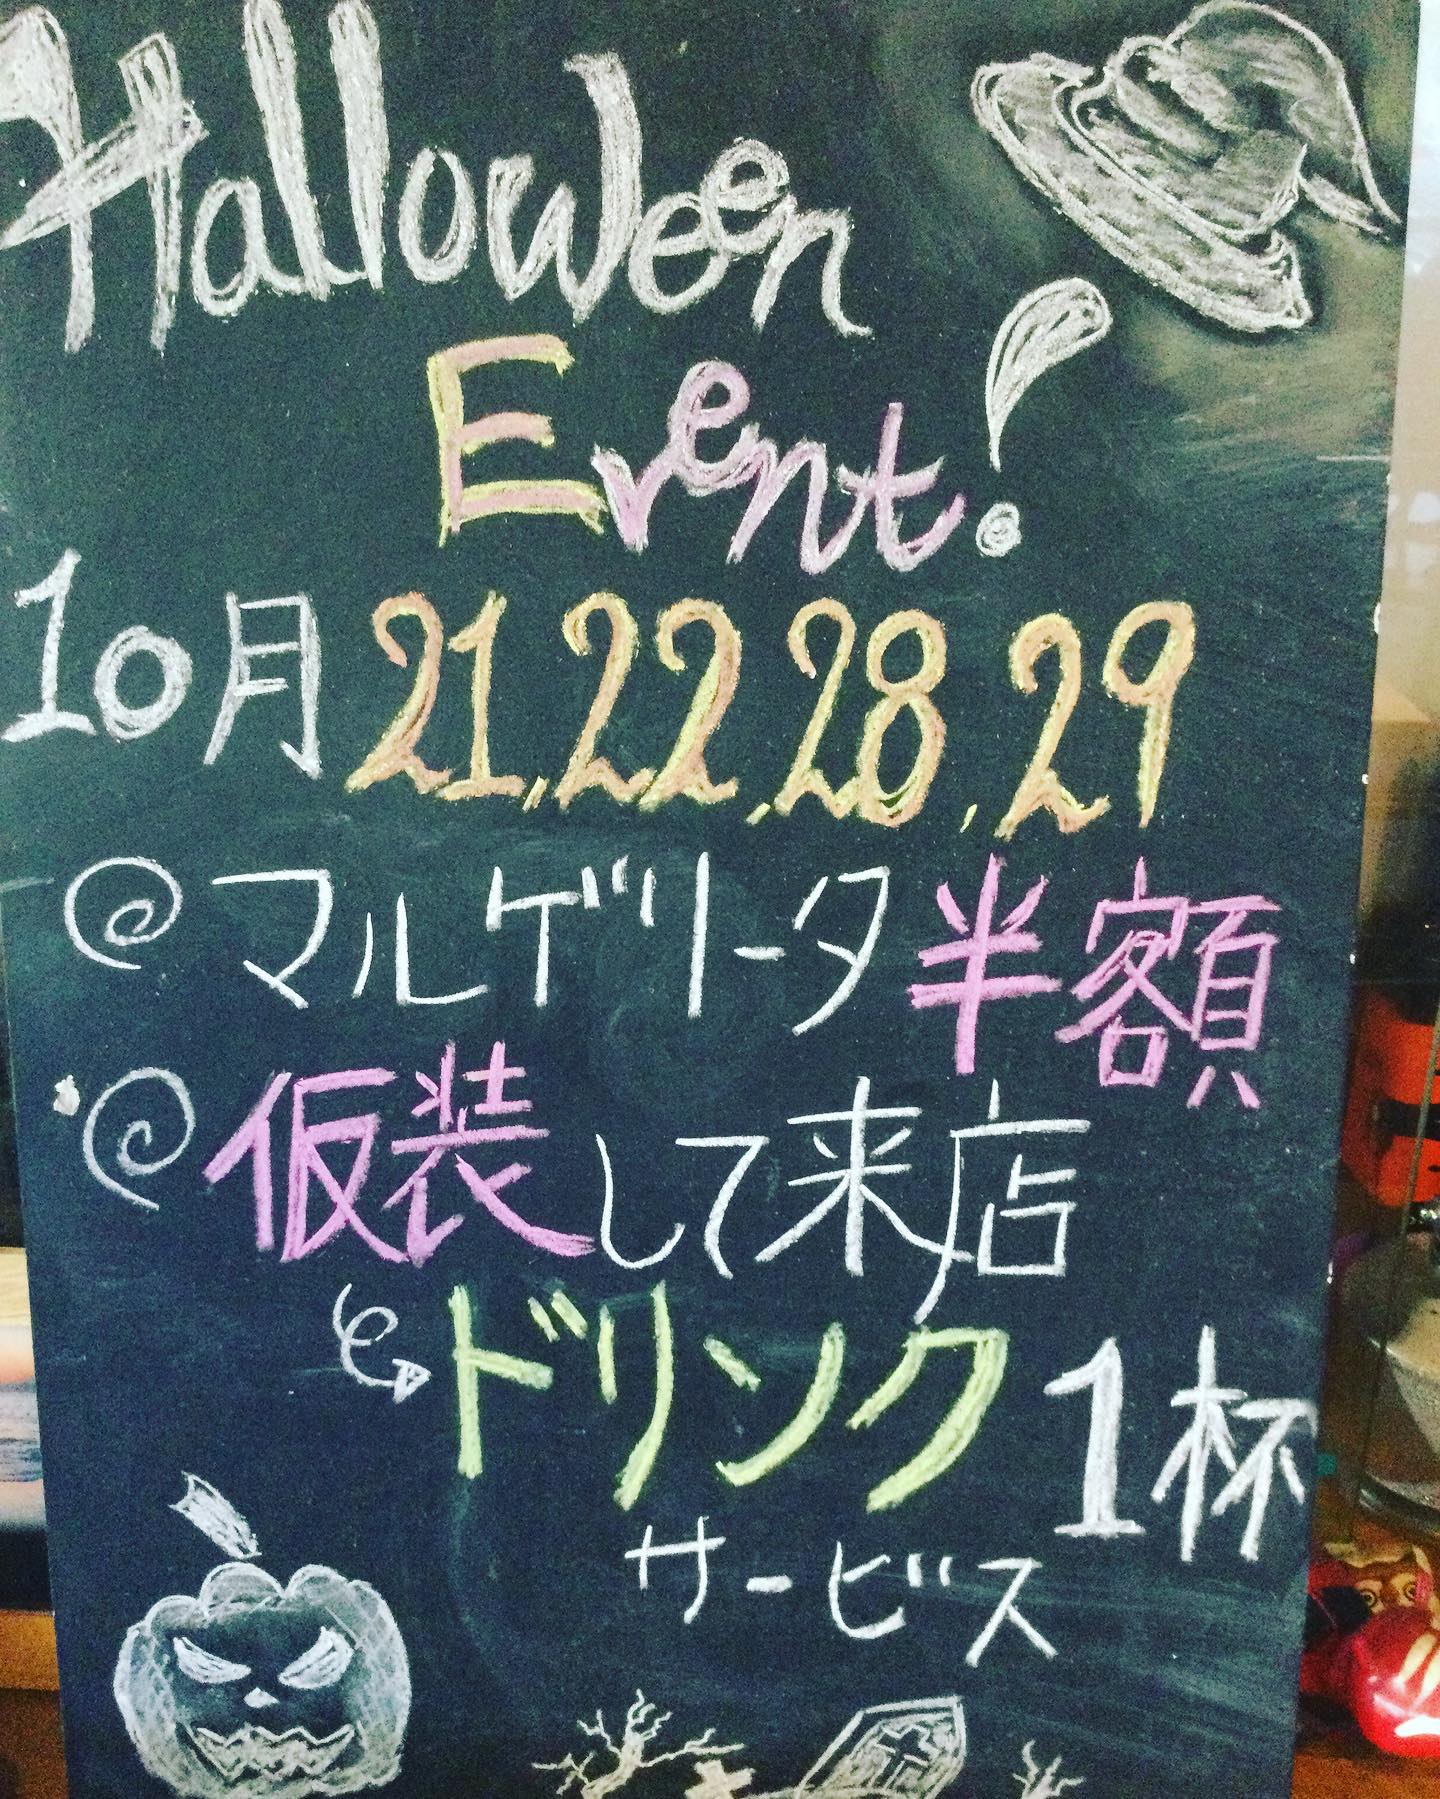 Halloween
Event!
10月21,22,28,29
@マルゲリータ半額
@仮装して来店
ドリンク1杯
サービス